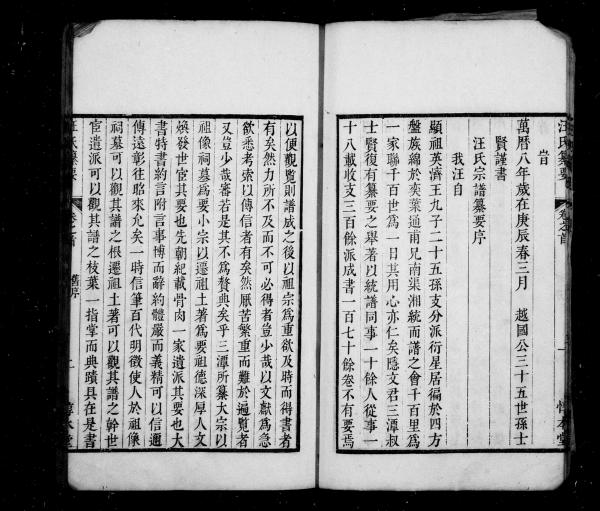 汪氏纂要
卷之首
一
惇本堂
旹
萬曆八年歲在庚辰春三月　越國公三十五世孫士
賢謹書
汪氏宗譜纂要序
我汪自
顯祖英濟王九子二十五孫支分派衍星居徧於四方
盤族綿於奕葉通甫兄南渠湘統而譜之會千百里爲
一家聯千百世爲一日其用心亦仁矣隱文君三潭叔
士賢復有纂要之舉著以統譜同事一十餘人從事一
十八載收支三百餘派成書一百七十餘卷不有要焉
以便觀覽則譜成之後以祖宗爲重欲及時而得書者
有矣然力所不及而不可必得者豈少哉以文獻爲急
欲悉考索以傳信者有矣然厭苦繁重而難於遍覽者
又豈少哉審若是其不爲贅典矣乎三潭所纂大宗以
祖像祠墓爲要小宗以遷祖土著爲要祖德深厚人文
煥發世宦其要也先朝紀載骨肉一家遺派其要也大
書特書約言附言事博而辭約體嚴而義精可以信邇
傳遠彰往昭來允矣一時信筆百代明徵使人於祖像
祠墓可以觀其譜之根遷祖土著可以觀其譜之幹世
宦遺派可以觀其譜之枝葉一指掌而典蹟具在是書
汪氏纂要
卷之首
舊序
二
惇本堂